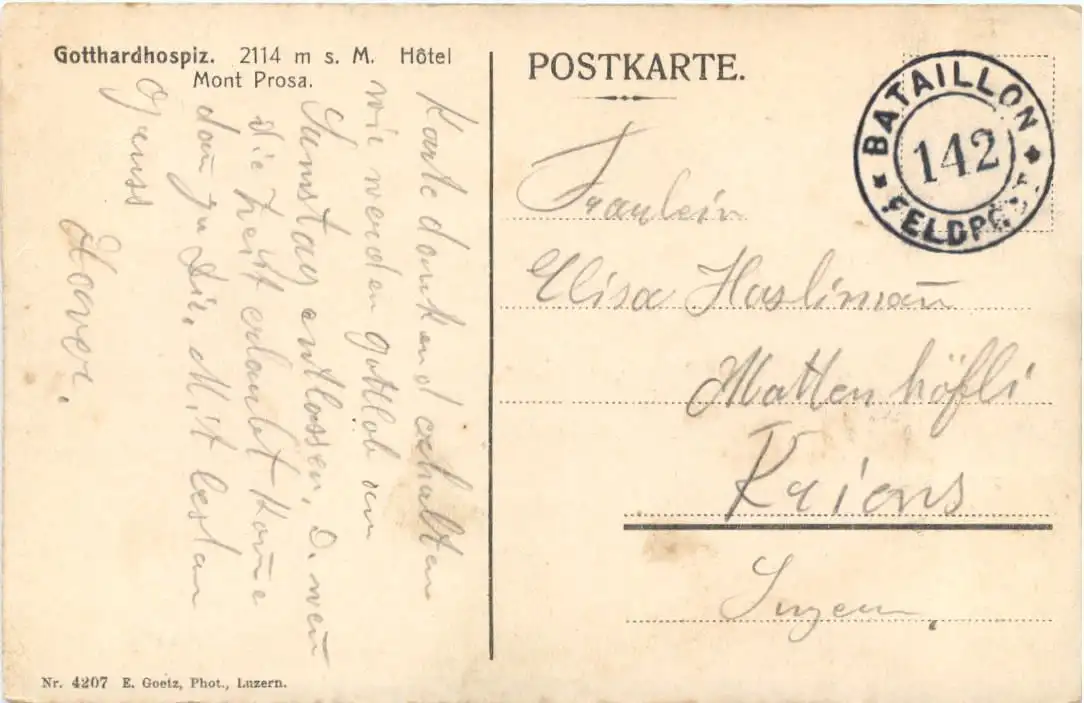 Gotthardhospiz. 2114 m s. M. Hôtel
Mont Prosa.
Karte dankend erhalten
wir werden gottlob am
Samstag entlassen, O. wen̄
die Zeit erlaubt kom̄e
dan̄ zu Dir. Mit besten
Gruss
POSTKARTE.
BATAILLON
142
FELDPOST
Fräulein
Elisa Hasliman̄
Mattenhöfli
Kriens
Luzern.
Nr. 4207 E. Goetz, Phot., Luzern.